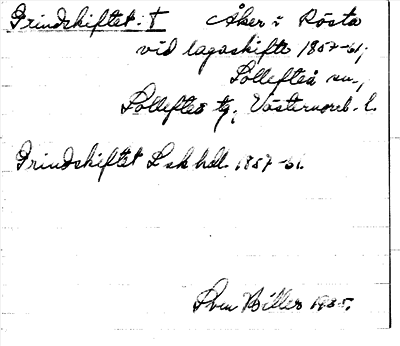 Grindskiftet: † Åker i Rösta
vid lagaskifte 1857-61,
Sollefteå sn.,
Sollefteå tg, Västernorrl. l.
Grindskiftet L sk hdl. 1857-61.
Sven Biller 1935.